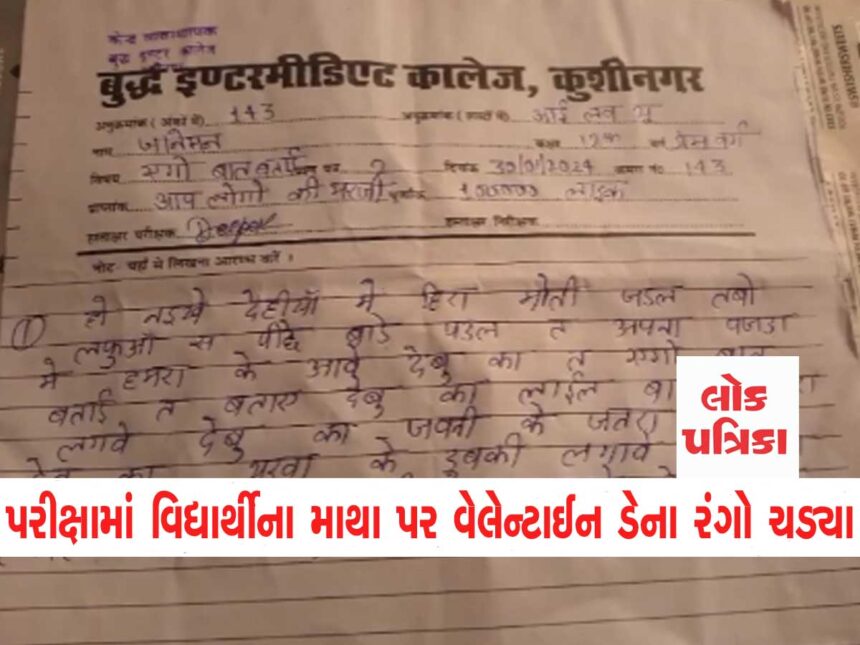 केन्द्र व्यवस्थापक
बुद्ध इण्टर कालेज
बुद्ध इण्टरमीडिएट कालेज, कुशीनगर
अनुक्रमांक ( अंकों में ) 143 अनुक्रमांक ( शब्दों में ) आई लव यू
नाम जानेमन कक्षा 12th वर्ग प्रेम वर्ग
विषय एगो बात बताई प्रश्न पत्र 2 दिनांक 30/01/2024 कमरा नं० 143
प्राप्तांक आप लोगो की मरजी लाइक
हस्ताक्षर परीक्षक Deepak हस्ताक्षर निरीक्षक
नोट- यहाँ से लिखना आरम्भ करें ।
① हो नइखे देहीयाँ मे हिरा मोती जडल तबो
लफुओ स पीछे बाड़े पडल त अपना पजडा
मे हमरा के आवे देबु का त एगो बात
बताई त बताए देबु का लाईल बा
लगवे देबु का जवनी के जतरा
के डुबकी लगावे
લોક
પત્રિકા
પરીક્ષામાં વિદ્યાર્થીના માથા પર વેલેન્ટાઈન ડેના રંગો ચડ્યા